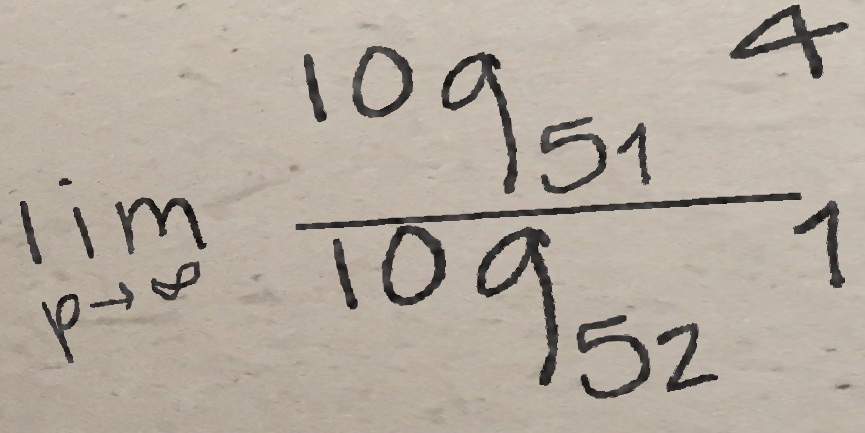 \lim_{p \to \infty} \frac{\log_{51} 4}{\log_{52} 1}